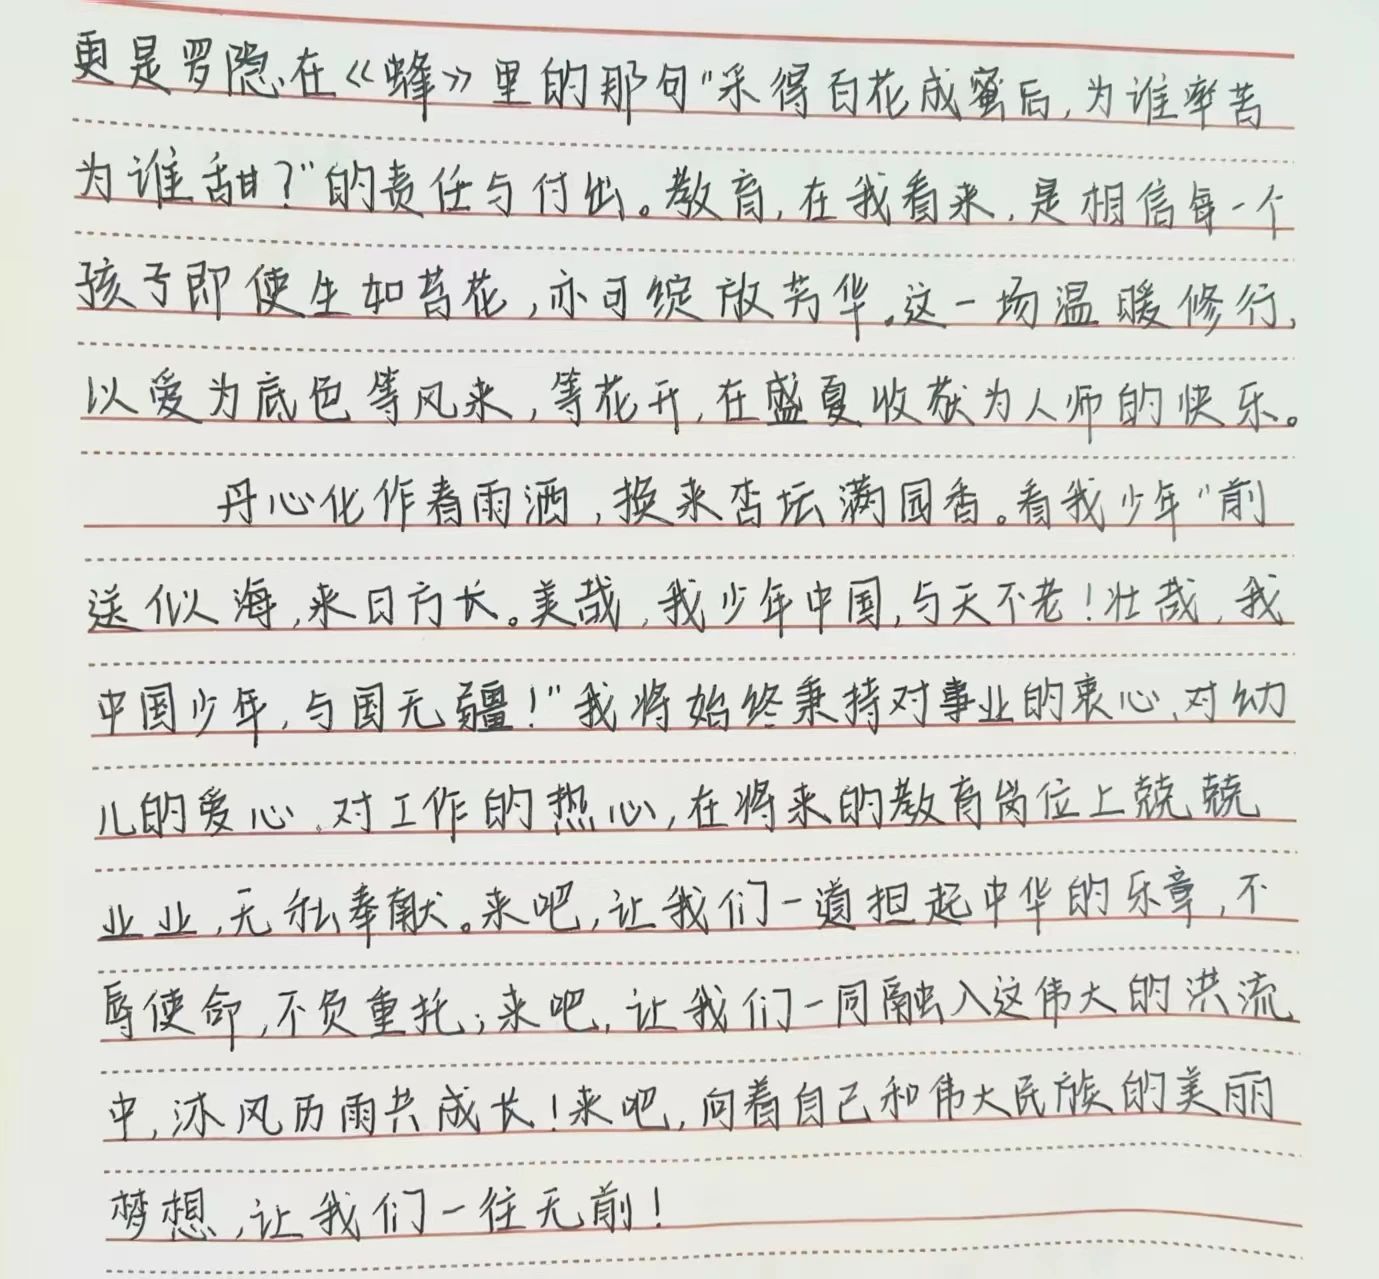 更是罗隐在《蜂》里的那句"采得百花成蜜后,为谁辛苦
为谁甜?"的责任与付出。教育,在我看来,是相信每一个
孩子即使生如苔花,亦可绽放芳华。这一场温暖修行,
以爱为底色等风来,等花开,在盛夏收获为人师的快乐。
丹心化作春雨洒,换来杏坛满园香。看我少年"前
途似海,来日方长。美哉,我少年中国,与天不老!壮哉,我
中国少年,与国无疆!"我将始终秉持对事业的衷心、对幼
儿的爱心、对工作的热心,在将来的教育岗位上兢兢
业业,无私奉献。来吧,让我们一道担起中华的乐章,不
辱使命,不负重托;来吧,让我们一同融入这伟大的洪流
中,沐风历雨共成长!来吧,向着自己和伟大民族的美丽
梦想,让我们一往无前!